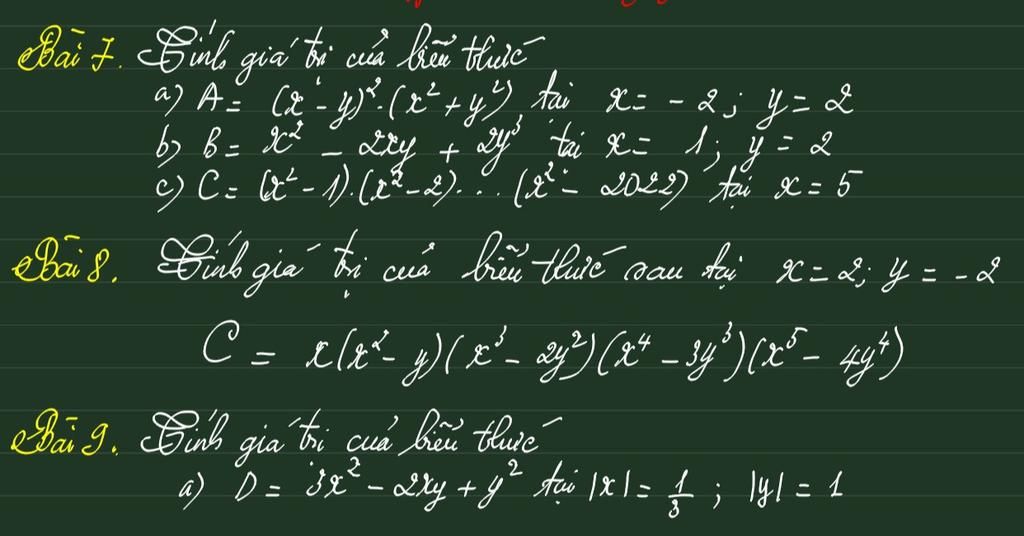 Bài 7. Tính giá trị của biểu thức
a) A = (x - y)². (x² + y²) tại x = - 2; y = 2
b) B = x² - 2xy + 2y³ tại x = 1; y = 2
c) C = (x² - 1).(x² - 2)... (x² - 2022) tại x = 5
Bài 8. Tính giá trị của biểu thức sau tại x = 2; y = - 2
C = x(x² - y)(x³ - 2y²)(x⁴ - 3y³)(x⁵ - 4y⁴)
Bài 9. Tính giá trị của biểu thức
a) D = 3x² - 2xy + y² tại |x| = 1/3 ; |y| = 1